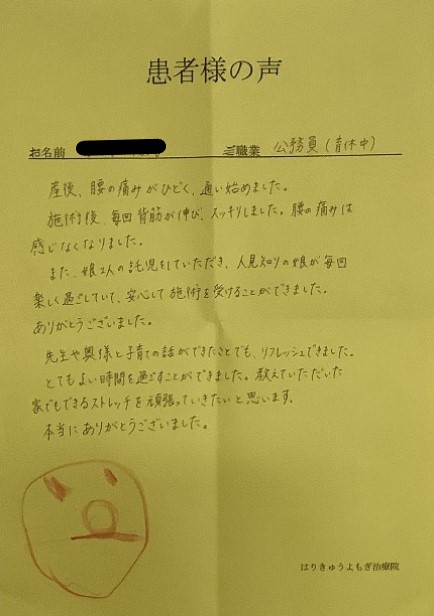 患者様の声
お名前
ご職業 公務員(育休中)
産後、腰の痛みがひどく、通い始めました。
施術後、毎回背筋が伸び、スッキリしました。腰の痛みは
感じなくなりました。
また、娘2人の託児をしていただき、人見知りの娘が毎回
楽しく過ごしていて、安心して施術を受けることができました。
ありがとうございました。
先生や奥様と子育ての話ができたことでも、リフレッシュできました。
とてもよい時間を過ごすことができました。教えていただいた
家でもできるストレッチを頑張っていきたいと思います。
本当にありがとうございました。
はりきゅうよもぎ治療院